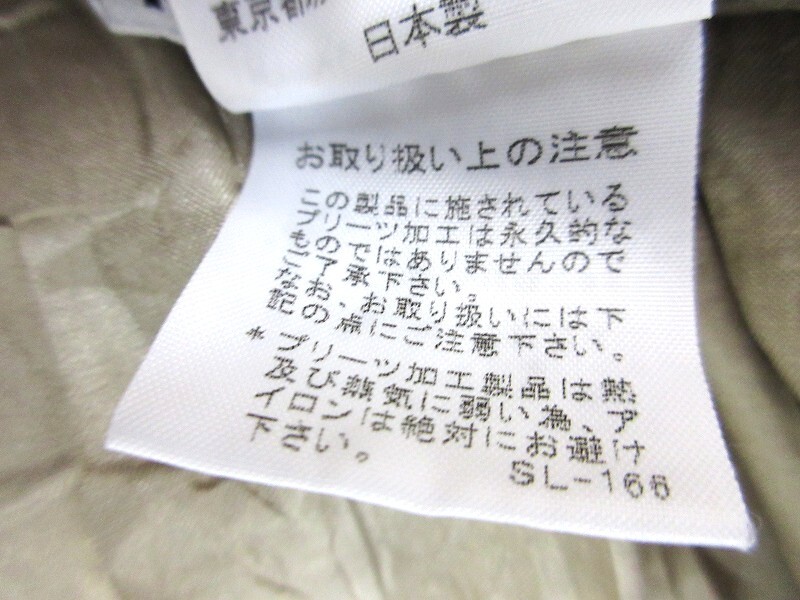 東京都
日本製
お取り扱い上の注意
この製品に施されている
プリーツ加工は永久的な
ものではありませんので
ご了承下さい。
なお、お取り扱いには下
記の点にご注意下さい。
*プリーツ加工製品は熱
及び蒸気に弱い為、ア
イロンは絶対にお避け
下さい。
SL-166